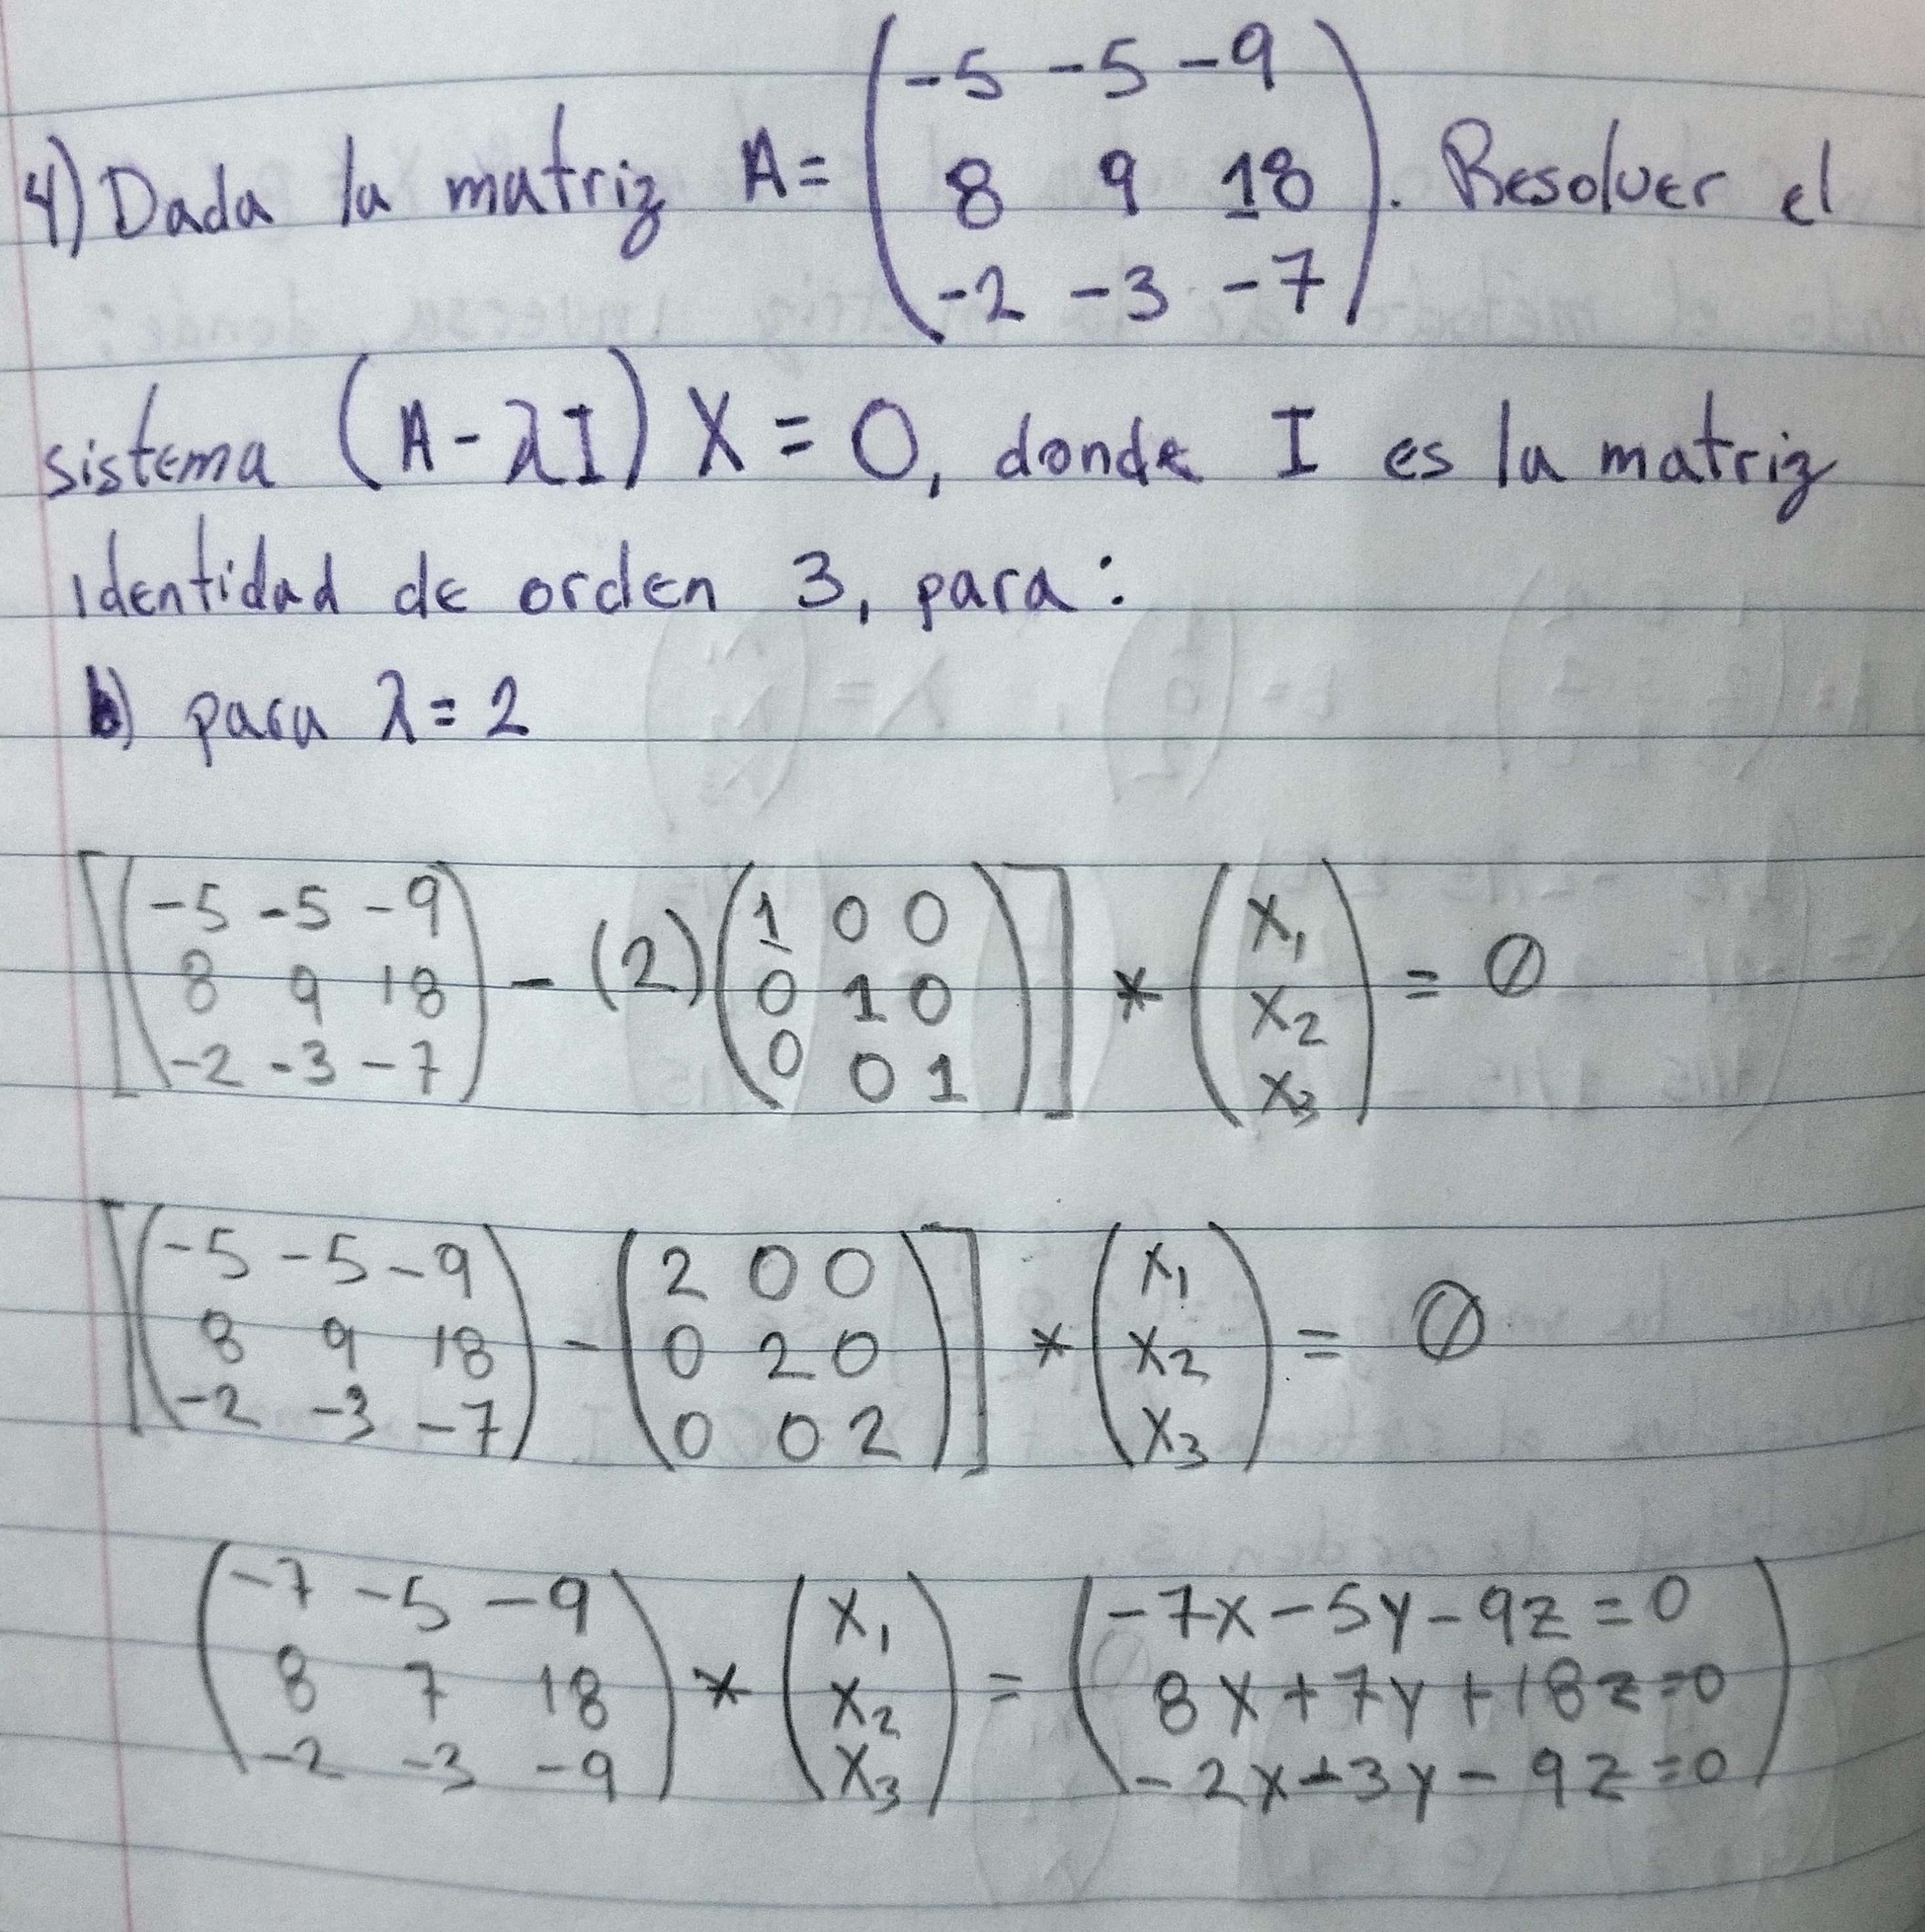 4) Dada la matriz A = (-5 -5 -9
8 9 18
-2 -3 -7). Resolver el
sistema (A - λI) X = 0, donde I es la matriz
identidad de orden 3, para:
b) para λ = 2
[(-5 -5 -9
8 9 18
-2 -3 -7) - (2) (1 0 0
0 1 0
0 0 1)] * (x₁
x₂
x₃) = ∅
[(-5 -5 -9
8 9 18
-2 -3 -7) - (2 0 0
0 2 0
0 0 2)] * (x₁
x₂
x₃) = ∅
(-7 -5 -9
8 7 18
-2 -3 -9) * (x₁
x₂
x₃) = (-7x - 5y - 9z = 0
8x + 7y + 18z = 0
-2x - 3y - 9z = 0)